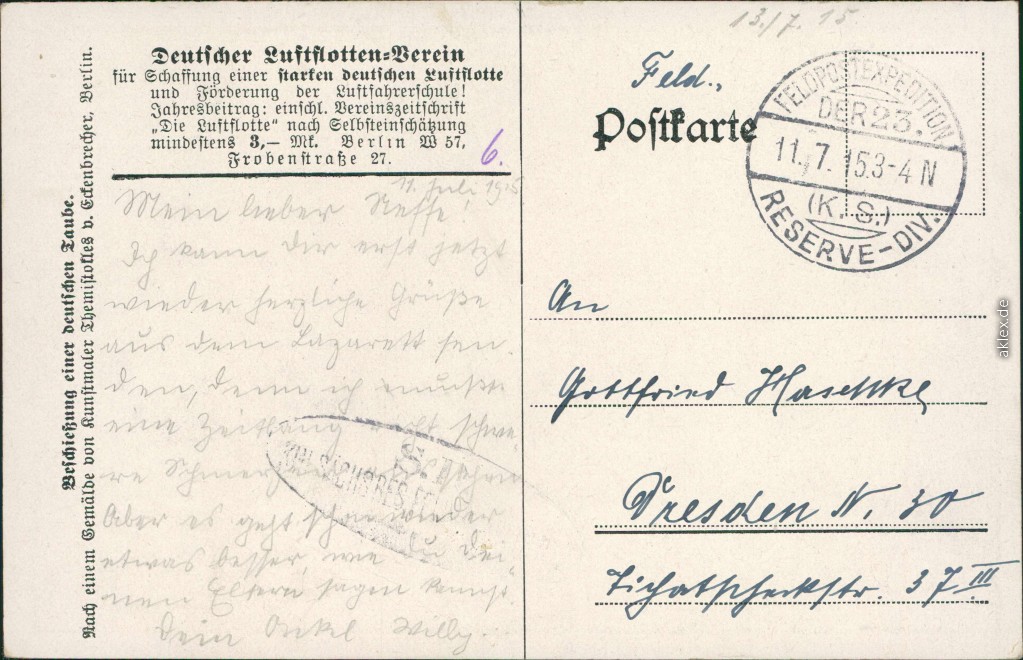 Deutscher Luftflotten-Verein
für Schaffung einer starken deutschen Luftflotte
und Förderung der Luftfahrerschule!
Jahresbeitrag: einschl. Vereinszeitschrift
„Die Luftflotte“ nach Selbsteinschätzung
mindestens 3,— Mk. Berlin W 57,
Frobenstraße 27.
6.
Beschießung einer deutschen Taube.
Nach einem Gemälde von Kunstmaler Themistokles v. Eckenbrecher, Berlin.
11. Juli 1915
Mein lieber Neffe!
Ich kann Dir erst jetzt
wieder herzliche Grüße
aus dem Lazarett sen-
den, denn ich mußte
eine Zeitlang recht schwe-
re Schmerzen
Aber es geht schon wieder
etwas besser, wie Du Dei-
nen Eltern sagen kannst.
Dein Onkel Willy.
13./7. 15
Feld-
Postkarte
FELDPOSTEXPEDITION
DER 23.
11.7.15 3-4 N
(K. S.)
RESERVE-DIV.
An
Gottfried Haschke
Dresden N. 30
Tichatscheckstr. 37 III
aklex.de